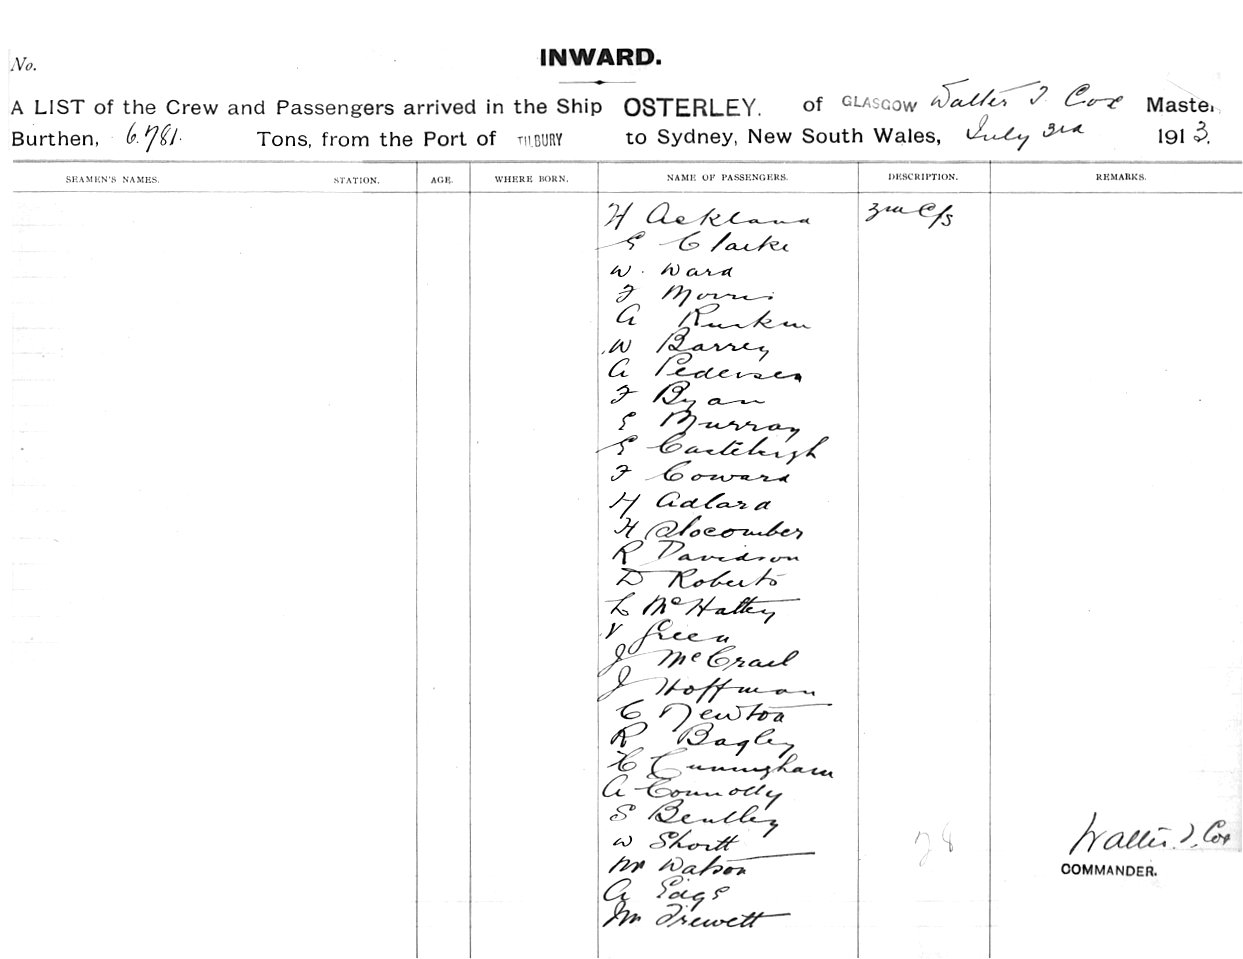 INWARD.
No.
A LIST of the Crew and Passengers arrived in the Ship OSTERLEY. of GLASGOW Walter J. Cox Master
Burthen, 6.781. Tons, from the Port of TILBURY to Sydney, New South Wales, July 3rd 1913.
SEAMEN'S NAMES. STATION. AGE. WHERE BORN. NAME OF PASSENGERS. DESCRIPTION. REMARKS.
H Ackland 3rd C/s
E Clarke
W. Ward
F Morris
A Ruskin
W Barrey
A Pedersen
F Byan
E Murray
E Castleigh
F Coward
H Adlard
H Slocomber
R Davidson
D Roberts
L McHattey
V Green
J McCrael
J Hoffman
C Newton
R Bagley
C Cunningham
A Connolly
S Bentley
W Shortt
Mr Watson
A Edge
M Trewett
28
Walter J. Cox
COMMANDER.